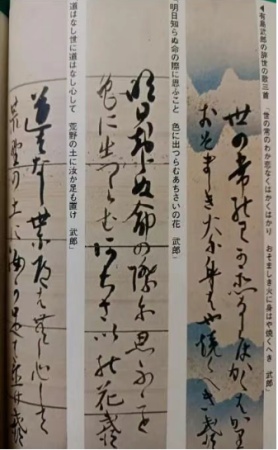 ◀有島武郎の辞世の歌三首　世の常のわか恋ならはかくはかり　おそましき火に身はや焼くへき　武郎」
世の常のわか恋ならはかくはかり
おそましき火に身はや焼くへき　武郎
明日知らぬ命の際に思ふこと　色に出つらむあちさいの花　武郎」
明日知らぬ命の際に思ふこと
色に出つらむあちさいの花　武郎
道はなし世に道はなし心して　荒野の土に汝か足も置け　武郎」
道はなし世に道はなし心して
荒野の土に汝か足も置け　武郎